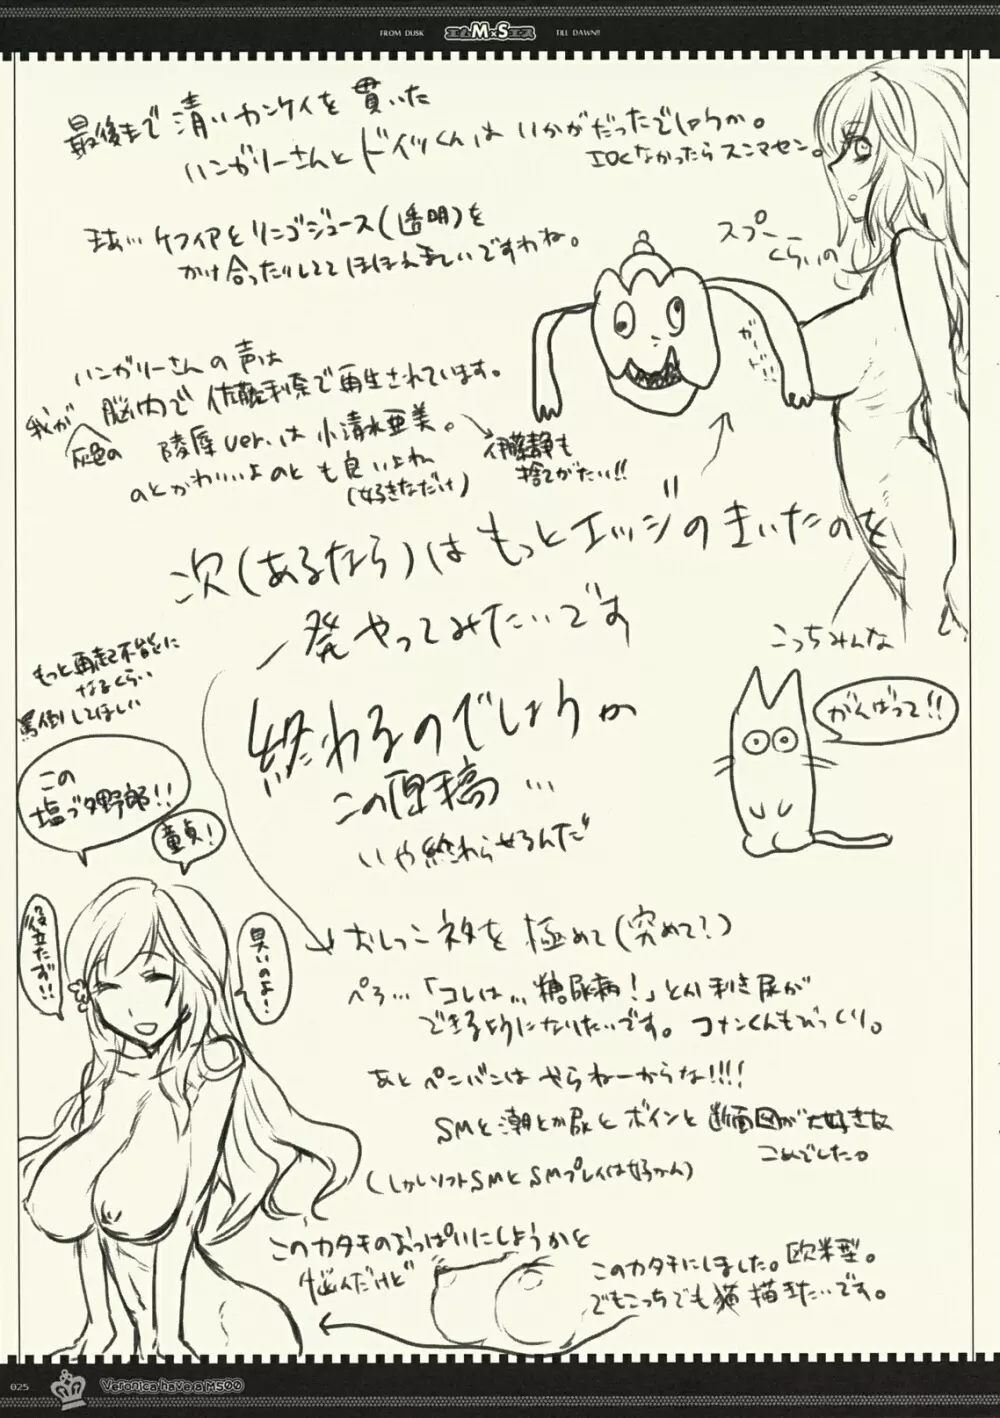 FROM DUSK
エムM×Sエス
TILL DAWN!!
最後まで清いカンケイを貫いた
ハンガリーさんとドイツくんはいかがだったでしょうか。
エロくなかったらスンマセン。
まあ…ケフィアとリンゴジュース(透明)を
かけ合ったりしててほほえましいですわね。
スプー
くらいの
ハンガリーさんの声は
我が
灰色の
脳内で佐藤利奈で再生されています。
陵辱ver.は小清水亜美。
のとかわいいよのとも良いよね
(好きなだけ)
伊藤静も
捨てがたい!!
次(あるなら)はもっとエッジのきいたのを
一発やってみたいです
こっちみんな
がんばって!!
もっと再起不能に
なるくらい
罵倒してほしい
終わるのでしょうか
この原稿…
いや終わらせるんだ
この
塩ブタ野郎!!
童貞!
役立たず!!
臭いのよー
おしっこネタを極めて(究めて?)
ペろ…「コレは…糖尿病!」とか利き尿が
できるようになりたいです。コナンくんもびっくり。
あとペンバンはやらねーからな!!!!
SMと潮とか尿とボインと断面図が大好きな
こめでした。
(しかしソフトSMとSMプレイは好かん)
このカタチのおっぱいにしようかと
悩んだけど
このカタチにしました。欧米型。
でもこっちでも猫描きたいです。
025
Veronica have a M500